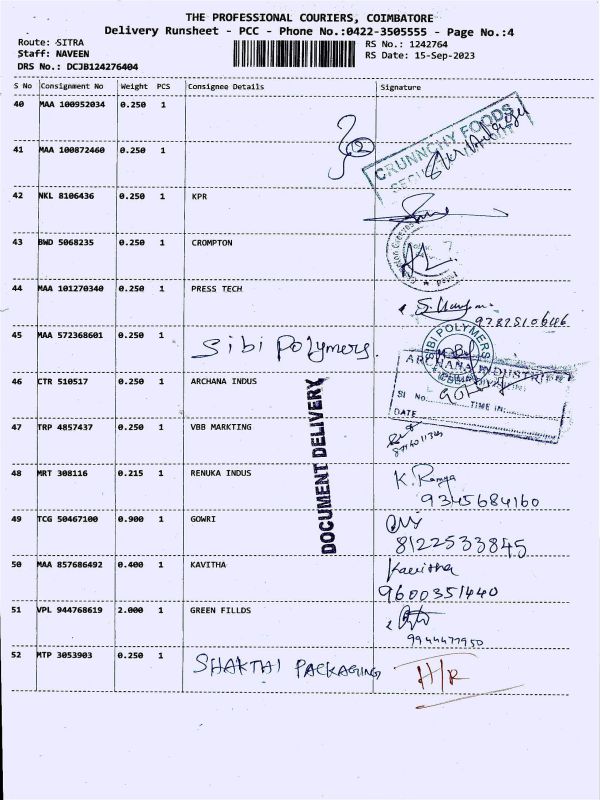 THE PROFESSIONAL COURIERS, COIMBATORE
Delivery Runsheet - PCC - Phone No.:0422-3505555 - Page No.:4
Route: SITRA RS No.: 1242764
Staff: NAVEEN RS Date: 15-Sep-2023
DRS No.: DCJB124276404
S No Consignment No Weight PCS Consignee Details Signature
40 MAA 100952034 0.250 1
CRUNNCHY FOODS
41 MAA 100872460 0.250 1
12
42 NKL 8106436 0.250 1 KPR
43 BWD 5068235 0.250 1 CROMPTON
44 MAA 101270340 0.250 1 PRESS TECH
45 MAA 572368601 0.250 1 Sibi Polymers.
SIBI POLYMERS
46 CTR 510517 0.250 1 ARCHANA INDUS
ARCHANA INDUSTRIES
SI No. TIME IN:
DATE
47 TRP 4857437 0.250 1 VBB MARKTING
DOCUMENT DELIVERY
48 MRT 308116 0.215 1 RENUKA INDUS K. Ramya
9345684160
49 TCG 50467100 0.900 1 GOWRI
8122533845
50 MAA 857686492 0.400 1 KAVITHA Kavitha
9600351440
51 VPL 944768619 2.000 1 GREEN FILLDS
9944477950
52 MTP 3053903 0.250 1 SHAKTHI PACKAGING H/R